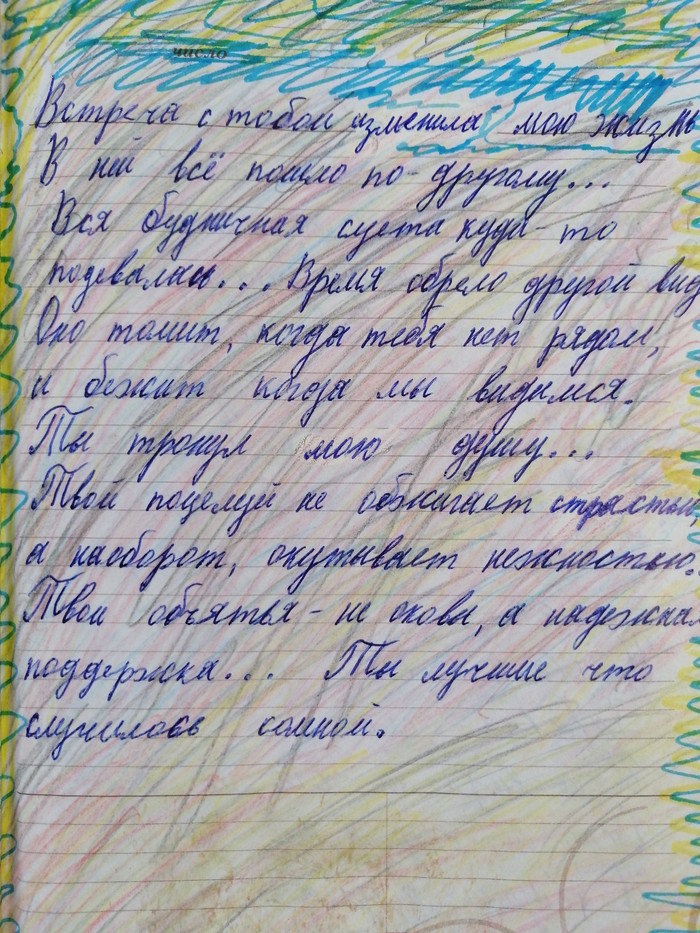 число
Встреча с тобой изменила мою жизнь
В ней всё пошло по-другому...
Вся будничная суета куда-то
подевалась... Время обрело другой вид
Оно томит, когда тебя нет рядом,
и бежит когда мы видимся.
Ты тронул мою душу...
Твой поцелуй не обжигает страстью,
а наоборот, окутывает нежностью.
Твои объятья - не оковы, а надежная
поддержка... Ты лучшие что
случилось сомной.